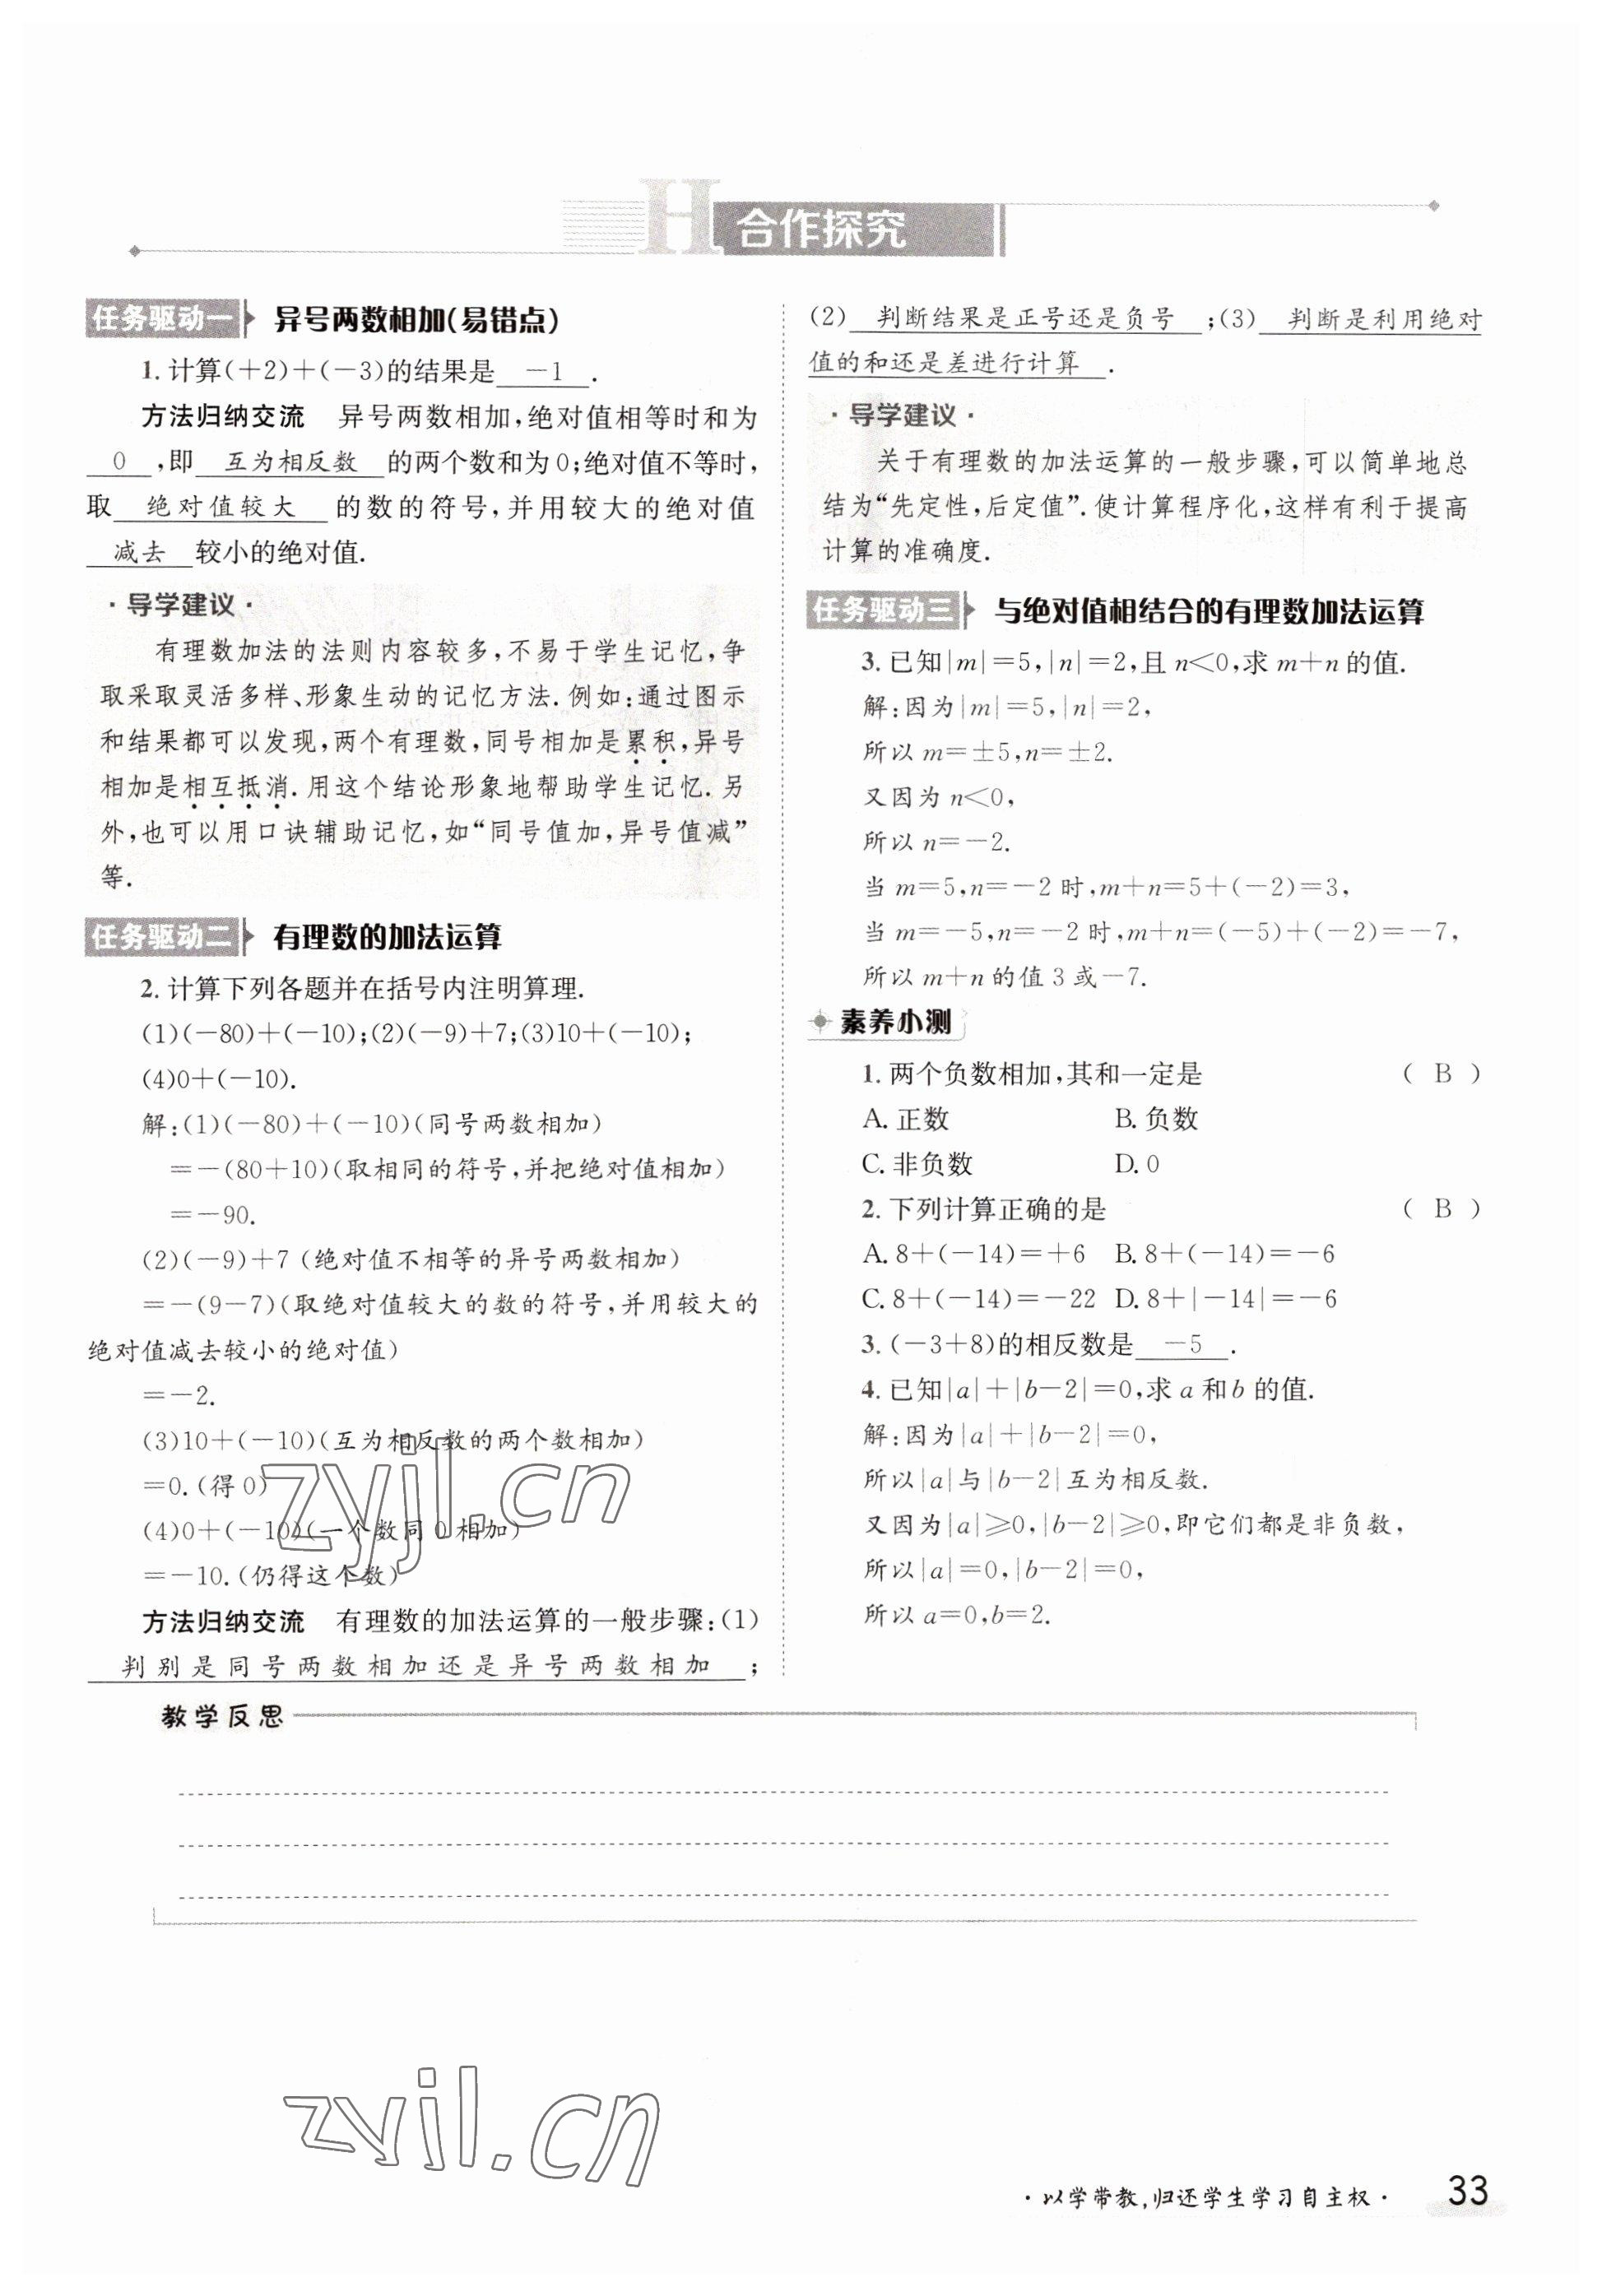 H 合作探究
任务驱动一 异号两数相加(易错点)
1. 计算(+2)+(-3)的结果是 -1 .
方法归纳交流 异号两数相加,绝对值相等时和为
0 ,即 互为相反数 的两个数和为0;绝对值不等时,
取 绝对值较大 的数的符号,并用较大的绝对值
减去 较小的绝对值.
·导学建议·
有理数加法的法则内容较多,不易于学生记忆,争
取采取灵活多样、形象生动的记忆方法.例如:通过图示
和结果都可以发现,两个有理数,同号相加是累积,异号
相加是相互抵消.用这个结论形象地帮助学生记忆.另
外,也可以用口诀辅助记忆,如“同号值加,异号值减”
等.
任务驱动二 有理数的加法运算
2. 计算下列各题并在括号内注明算理.
(1)(-80)+(-10);(2)(-9)+7;(3)10+(-10);
(4)0+(-10).
解:(1)(-80)+(-10)(同号两数相加)
=-(80+10)(取相同的符号,并把绝对值相加)
=-90.
(2)(-9)+7 (绝对值不相等的异号两数相加)
=-(9-7)(取绝对值较大的数的符号,并用较大的
绝对值减去较小的绝对值)
=-2.
(3)10+(-10)(互为相反数的两个数相加)
=0.(得0)
(4)0+(-10)(一个数同0相加)
=-10.(仍得这个数)
zyjl.cn
方法归纳交流 有理数的加法运算的一般步骤:(1)
判别是同号两数相加还是异号两数相加 ;
(2) 判断结果是正号还是负号 ;(3) 判断是利用绝对
值的和还是差进行计算 .
·导学建议·
关于有理数的加法运算的一般步骤,可以简单地总
结为“先定性,后定值”.使计算程序化,这样有利于提高
计算的准确度.
任务驱动三 与绝对值相结合的有理数加法运算
3. 已知|m|=5,|n|=2,且n<0,求m+n的值.
解:因为|m|=5,|n|=2,
所以m=±5,n=±2.
又因为n<0,
所以n=-2.
当m=5,n=-2时,m+n=5+(-2)=3,
当m=-5,n=-2时,m+n=(-5)+(-2)=-7,
所以m+n的值3或-7.
素养小测
1. 两个负数相加,其和一定是 ( B )
A. 正数 B. 负数
C. 非负数 D. 0
2. 下列计算正确的是 ( B )
A. 8+(-14)=+6 B. 8+(-14)=-6
C. 8+(-14)=-22 D. 8+|-14|=-6
3. (-3+8)的相反数是 -5 .
4. 已知|a|+|b-2|=0,求a和b的值.
解:因为|a|+|b-2|=0,
所以|a|与|b-2|互为相反数.
又因为|a|≥0,|b-2|≥0,即它们都是非负数,
所以|a|=0,|b-2|=0,
所以a=0,b=2.
教学反思
zyjl.cn
·以学带教,归还学生学习自主权· 33